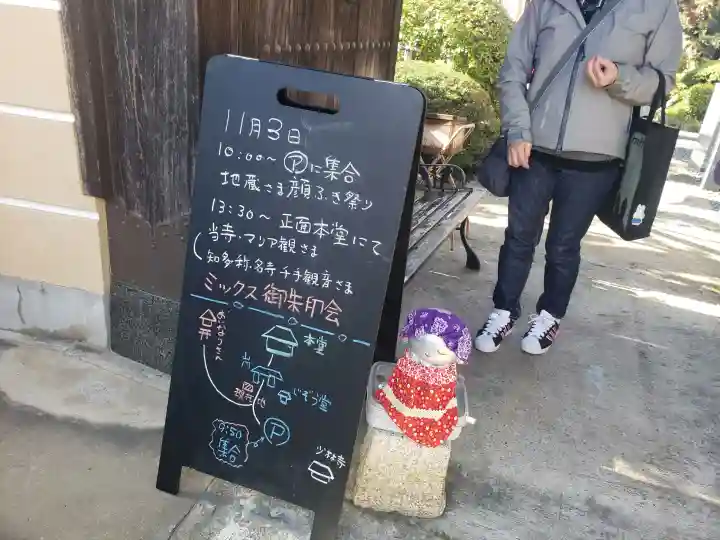 11月3日
10:00～ Ⓟに集合
地蔵さま顔ふき祭り
13:30～ 正面本堂にて
当寺・マリア観さま
知多称名寺千手観音さま
ミックス御朱印会
おいなりさん
本堂
じぞう堂
現在地
9:50
集合
Ⓟ
少林寺